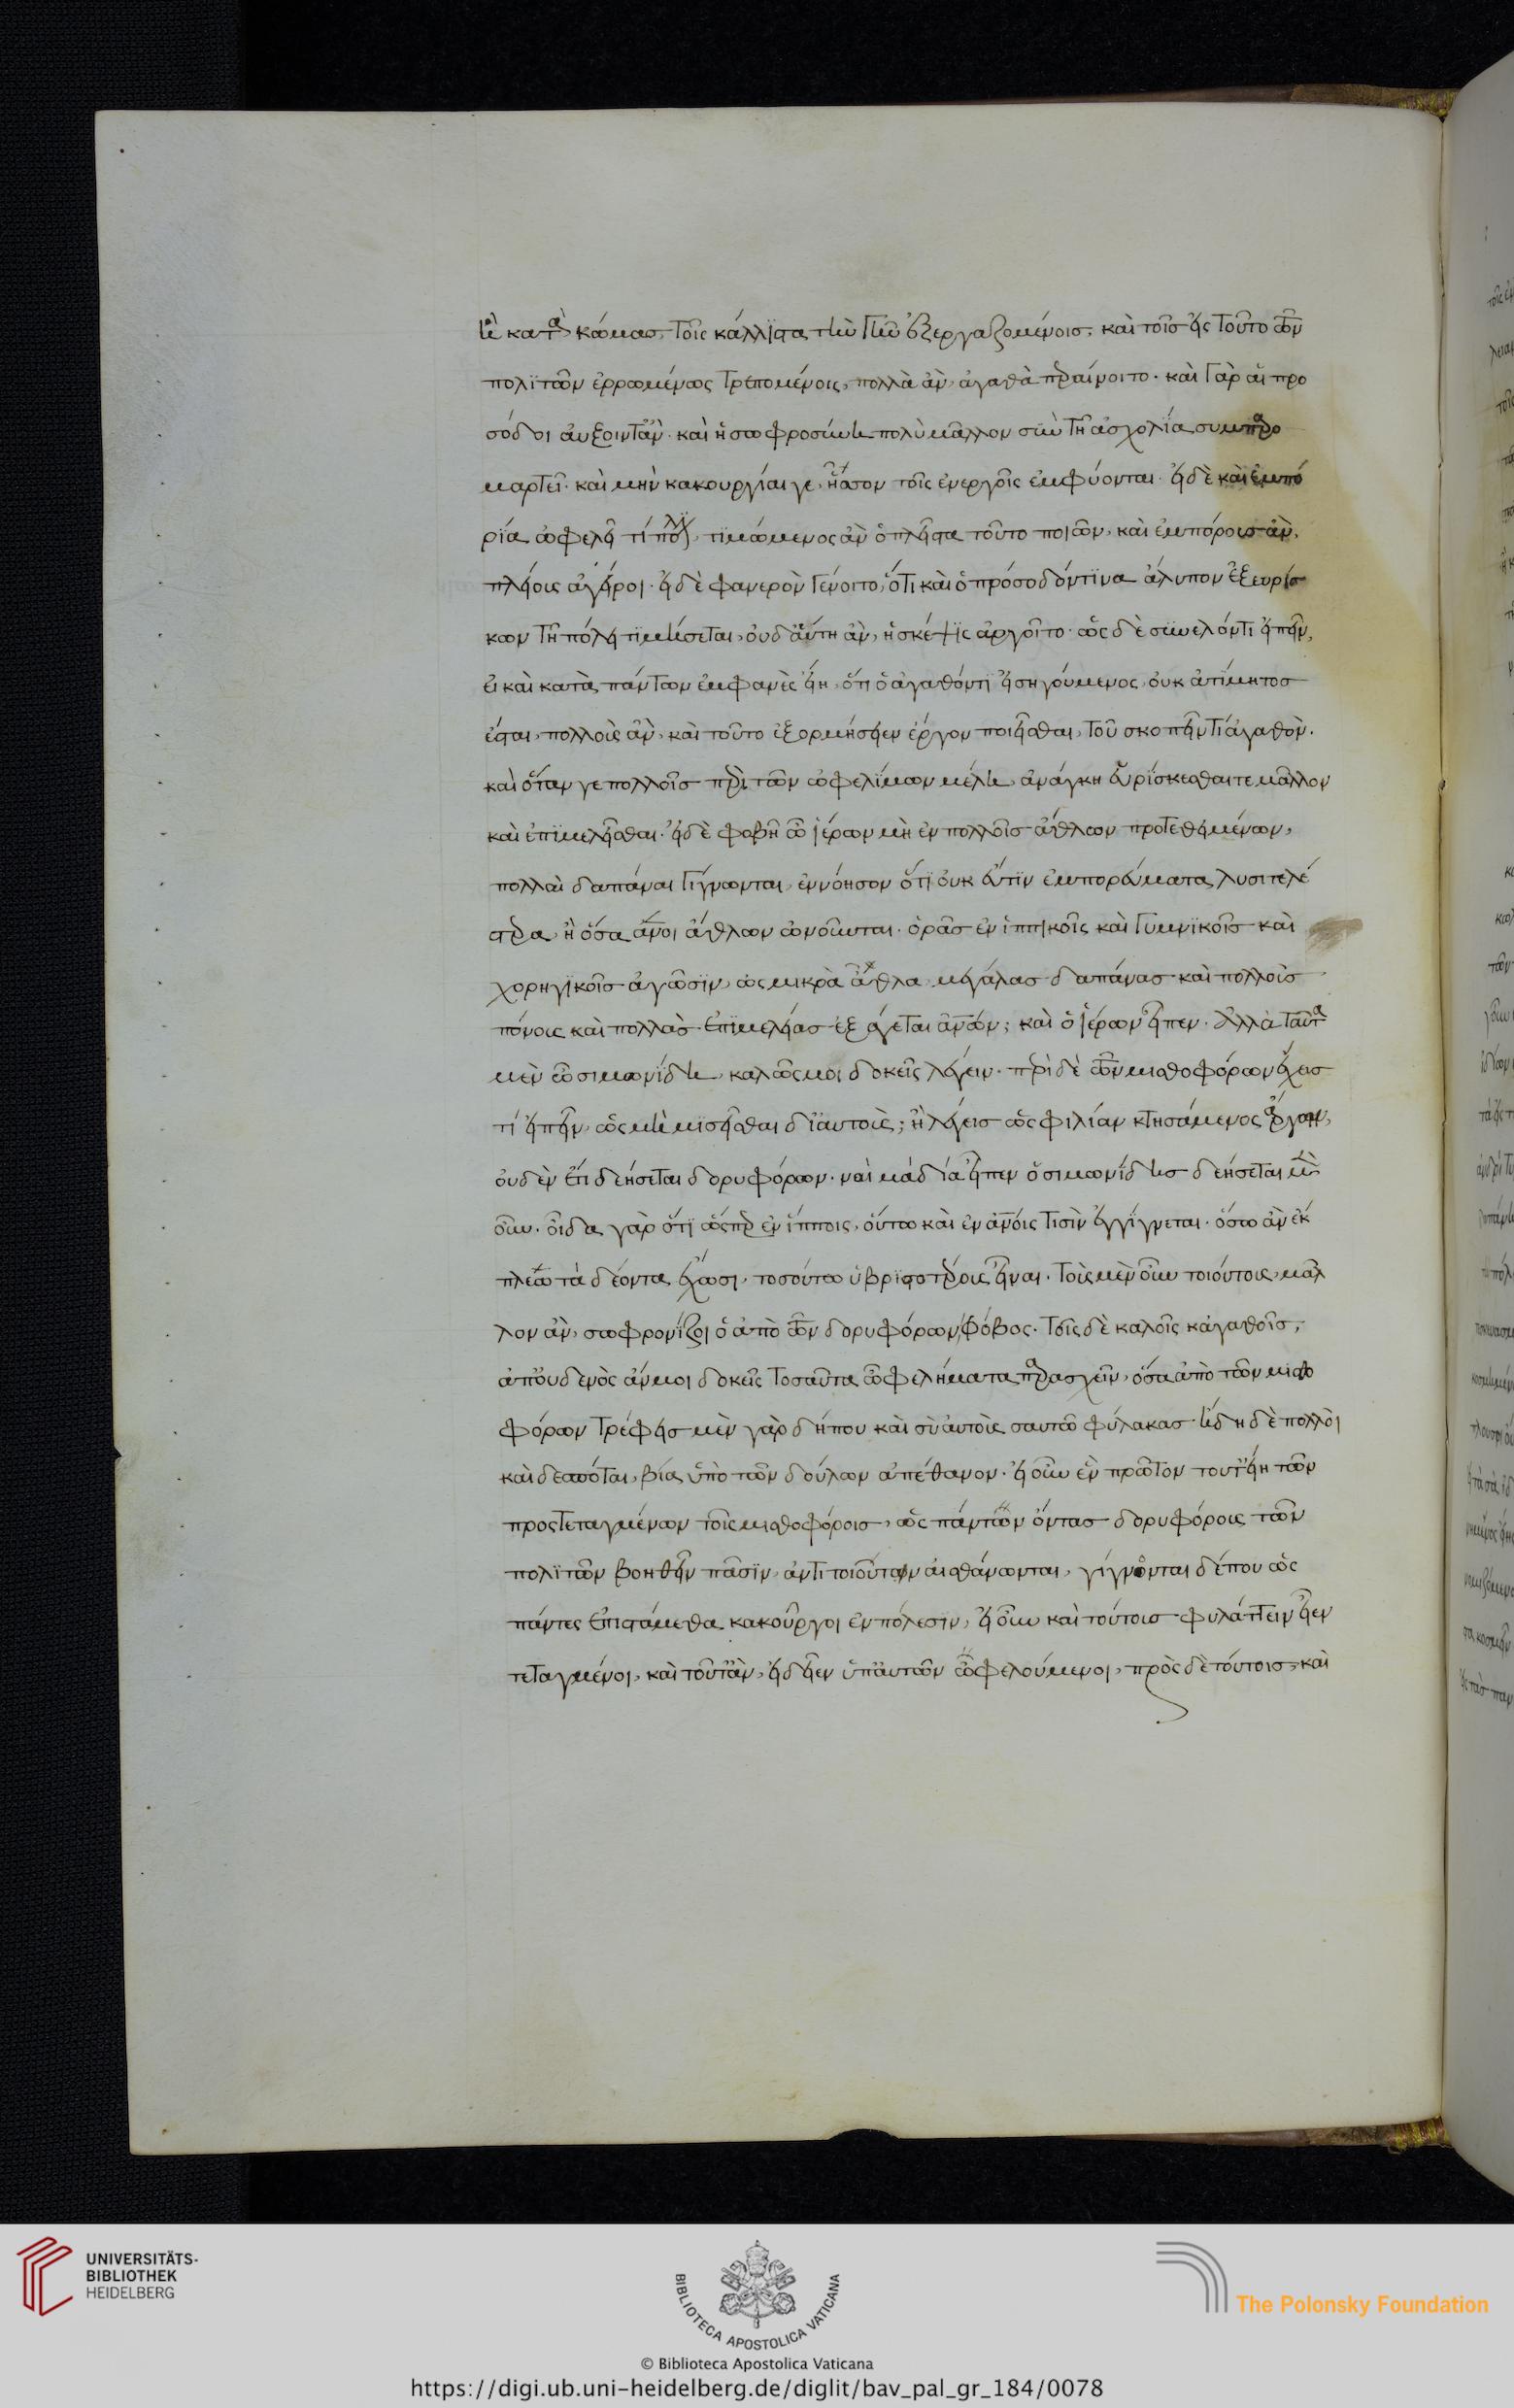 ἢ κατὰ κώμας, τοῖς κάλλιστα τὴν γῆν ἐξεργαζομένοις, καὶ τοῖς εἰς τοῦτο τῶν
πολιτῶν ἐρρωμένως τρεπομένοις, πολλὰ ἂν ἀγαθὰ περαίνοιτο. καὶ γὰρ αἱ προ
σόδοι αὔξοιντ' ἂν. καὶ ἡ σωφροσύνη πολὺ μᾶλλον σὺν τῇ ἀσχολία συμπαρο
μαρτεῖ. καὶ μὴν κακουργίαι γε, ἧσσον τοῖς ἐνεργοῖς ἐμφύονται. εἰ δὲ καὶ ἐμπο
ρία ὠφελεῖ τί πόλιν, τιμώμενος ἂν ὁ πλεῖστα τοῦτο ποιῶν, καὶ ἐμπόρους ἂν
πλείους ἀγείροι. εἰ δὲ φανερὸν γένοιτο, ὅτι καὶ ὁ πρόσοδόν τινα ἄλυπον ἐξευρίσ
κων τῇ πόλει τιμήσεται, οὐδ' αὕτη ἂν, ἡ σκέψις ἀργοῖτο. ὡς δὲ συνελόντι εἰπεῖν,
εἰ καὶ κατὰ πάντων ἐμφανὲς εἴη, ὅτι ὁ ἀγαθόν τι εἰσηγούμενος, οὐκ ἀτίμητος
ἔσται, πολλοὺς ἂν, καὶ τοῦτο ἐξορμήσειεν ἔργον ποιεῖσθαι, τοῦ σκοπεῖν τι ἀγαθόν.
καὶ ὅταν γε πολλοῖς περὶ τῶν ὠφελίμων μέλη, ἀνάγκη εὑρίσκεσθαι τε μᾶλλον
καὶ ἐπιμελεῖσθαι. εἰ δὲ φοβῇ ὦ ἱέρων μὴ ἐν πολλοῖς ἄθλων προτεθειμένων,
πολλαὶ δαπάναι γίγνωνται, ἐννόησον ὅτι οὐκ ἔστιν ἐμπορεύματα λυσιτελέ
στερα, ἢ ὅσα ἄνοι ἄθλων ὠνοῦνται. ὁρᾶς ἐν ἱππικοῖς καὶ γυμνικοῖς καὶ
χορηγικοῖς ἀγῶσιν, ὡς μικρὰ ἆθλα, μεγάλας δαπάνας καὶ πολλοὺς
πόνους καὶ πολλὰς ἐπιμελείας ἐξάγεται ἀνῶν; καὶ ὁ ἱέρων εἶπεν. ἀλλὰ ταῦτα
μὲν ὦ σιμωνίδη, καλῶς μοι δοκεῖς λέγειν. περὶ δὲ τῶν μισθοφόρων ἔχεις
τί εἰπεῖν, ὡς μὴ μισεῖσθαι δι' αὐτούς; ἢ λέγεις ὡς φιλίαν κτησάμενος ἄρχων,
οὐδὲν ἔτι δεήσεται δορυφόρων. ναὶ μὰ δία εἶπεν ὁ σιμωνίδης δεήσεται μὲν
οὖν. οἶδα γὰρ ὅτι ὥσπερ ἐν ἵπποις, οὕτω καὶ ἐν ἀνοις τισὶν ἐγγίγνεται. ὅσω ἂν ἐκ
πλεω τὰ δέοντα ἔχωσι, τοσούτω ὑβριστοτέροις εἶναι. τοὺς μὲν οὖν τοιούτους, μᾶλ
λον ἂν, σωφρονίζοι ὁ ἀπὸ τῶν δορυφόρων φόβος. τοῖς δὲ καλοῖς κἀγαθοῖς,
ἀπ' οὐδενὸς ἄν μοι δοκεῖς τοσαῦτα ὠφελήματα παρασχεῖν, ὅσα ἀπὸ τῶν μισθο
φόρων τρέφεις μὲν γὰρ δήπου καὶ σὺ αὐτοὺς σαυτῶ φύλακας ἤδη δὲ πολλοὶ
καὶ δεσπόται, βία ὑπὸ τῶν δούλων ἀπέθανον. εἰ οὖν ἓν πρῶτον τοῦτ' εἴη τῶν
προςτεταγμένων τοῖς μισθοφόροις, ὡς πάντων ὄντας δορυφόρους τῶν
πολιτῶν βοηθεῖν πᾶσιν, ἄν τι τοιοῦτον αἰσθάνωνται, γίγνονται δέ που ὡς
πάντες ἐπιστάμεθα κακοῦργοι ἐν πόλεσιν, εἰ οὖν καὶ τούτοις φυλάττειν εἶεν
τεταγμένοι, καὶ τοῦτ' ἂν, εἰδεῖεν ὑπ' αὐτῶν ὠφελούμενοι, πρὸς δὲ τούτοις, καὶ
UNIVERSITÄTS-
BIBLIOTHEK
HEIDELBERG
BIBLIOTECA APOSTOLICA VATICANA
The Polonsky Foundation
© Biblioteca Apostolica Vaticana
https://digi.ub.uni-heidelberg.de/diglit/bav_pal_gr_184/0078